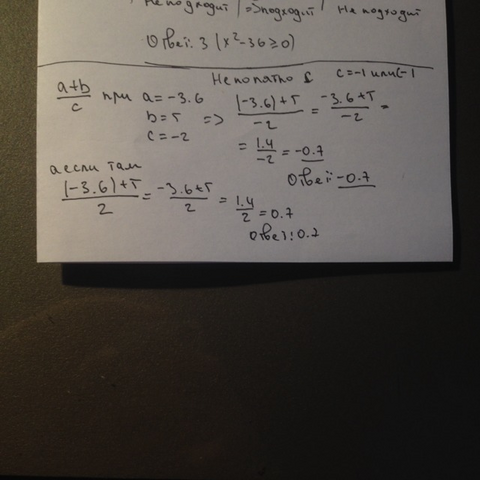 Не подходит | => подходит | Не подходит
Ответ: 3 (x²-36≥0)
Непонятно c=-1 или (-1
a+b/c при a=-3.6
b=5 => (-3.6)+5/-2 = -3.6+5/-2 =
c=-2
= 1.4/-2 = -0.7
Ответ: -0.7
а если там
(-3.6)+5/2 = -3.6+5/2 = 1.4/2 = 0.7
Ответ: 0.7